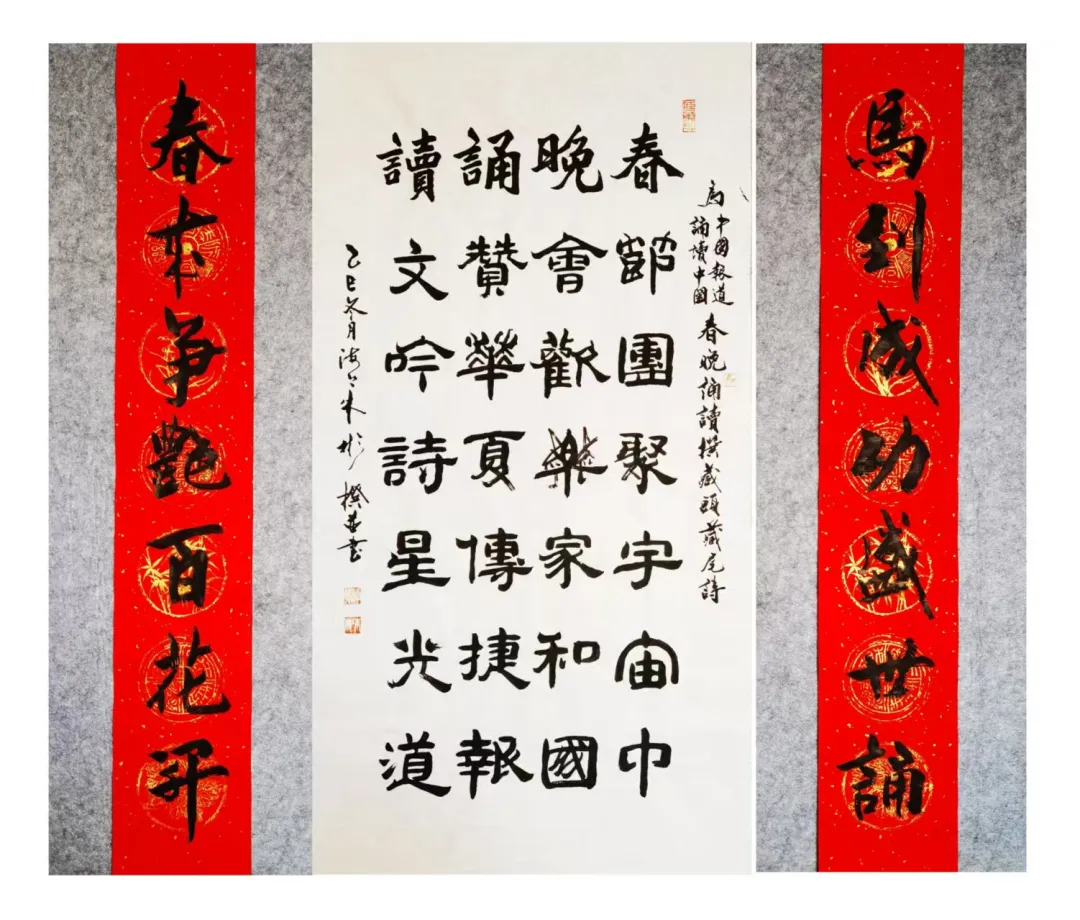 馬到成功盛世誦
為
中國報道
誦讀中國
春晚誦讀撰藏頭藏尾詩
春節團聚宇宙中
晚會歡樂家和國
誦贊華夏傳捷報
讀文吟詩星光道
乙巳冬月海上朱彬撰並書
春來争艷百花开